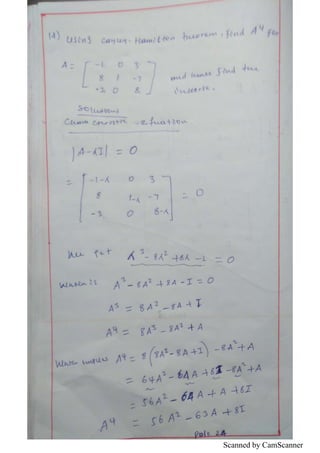 Using Cayley-Hamilton theorem, find A⁴ for
A = [ -1 0 3
8 1 -7
-3 0 8 ] and hence find the
inverse.
Solution
equation
|A-λI| = 0
= [ -1-λ 0 3
8 1-λ -7
-3 0 8-λ ] = 0
We get λ³ - 8λ² + 8λ - 1 = 0
A³ - 8A² + 8A - I = 0
A³ = 8A² - 8A + I
A⁴ = 8A³ - 8A² + A
A⁴ = 8(8A² - 8A + I) - 8A² + A
= 64A² - 64A + 8I - 8A² + A
= 56A² - 64A + A + 8I
A⁴ = 56A² - 63A + 8I
Scanned by CamScanner